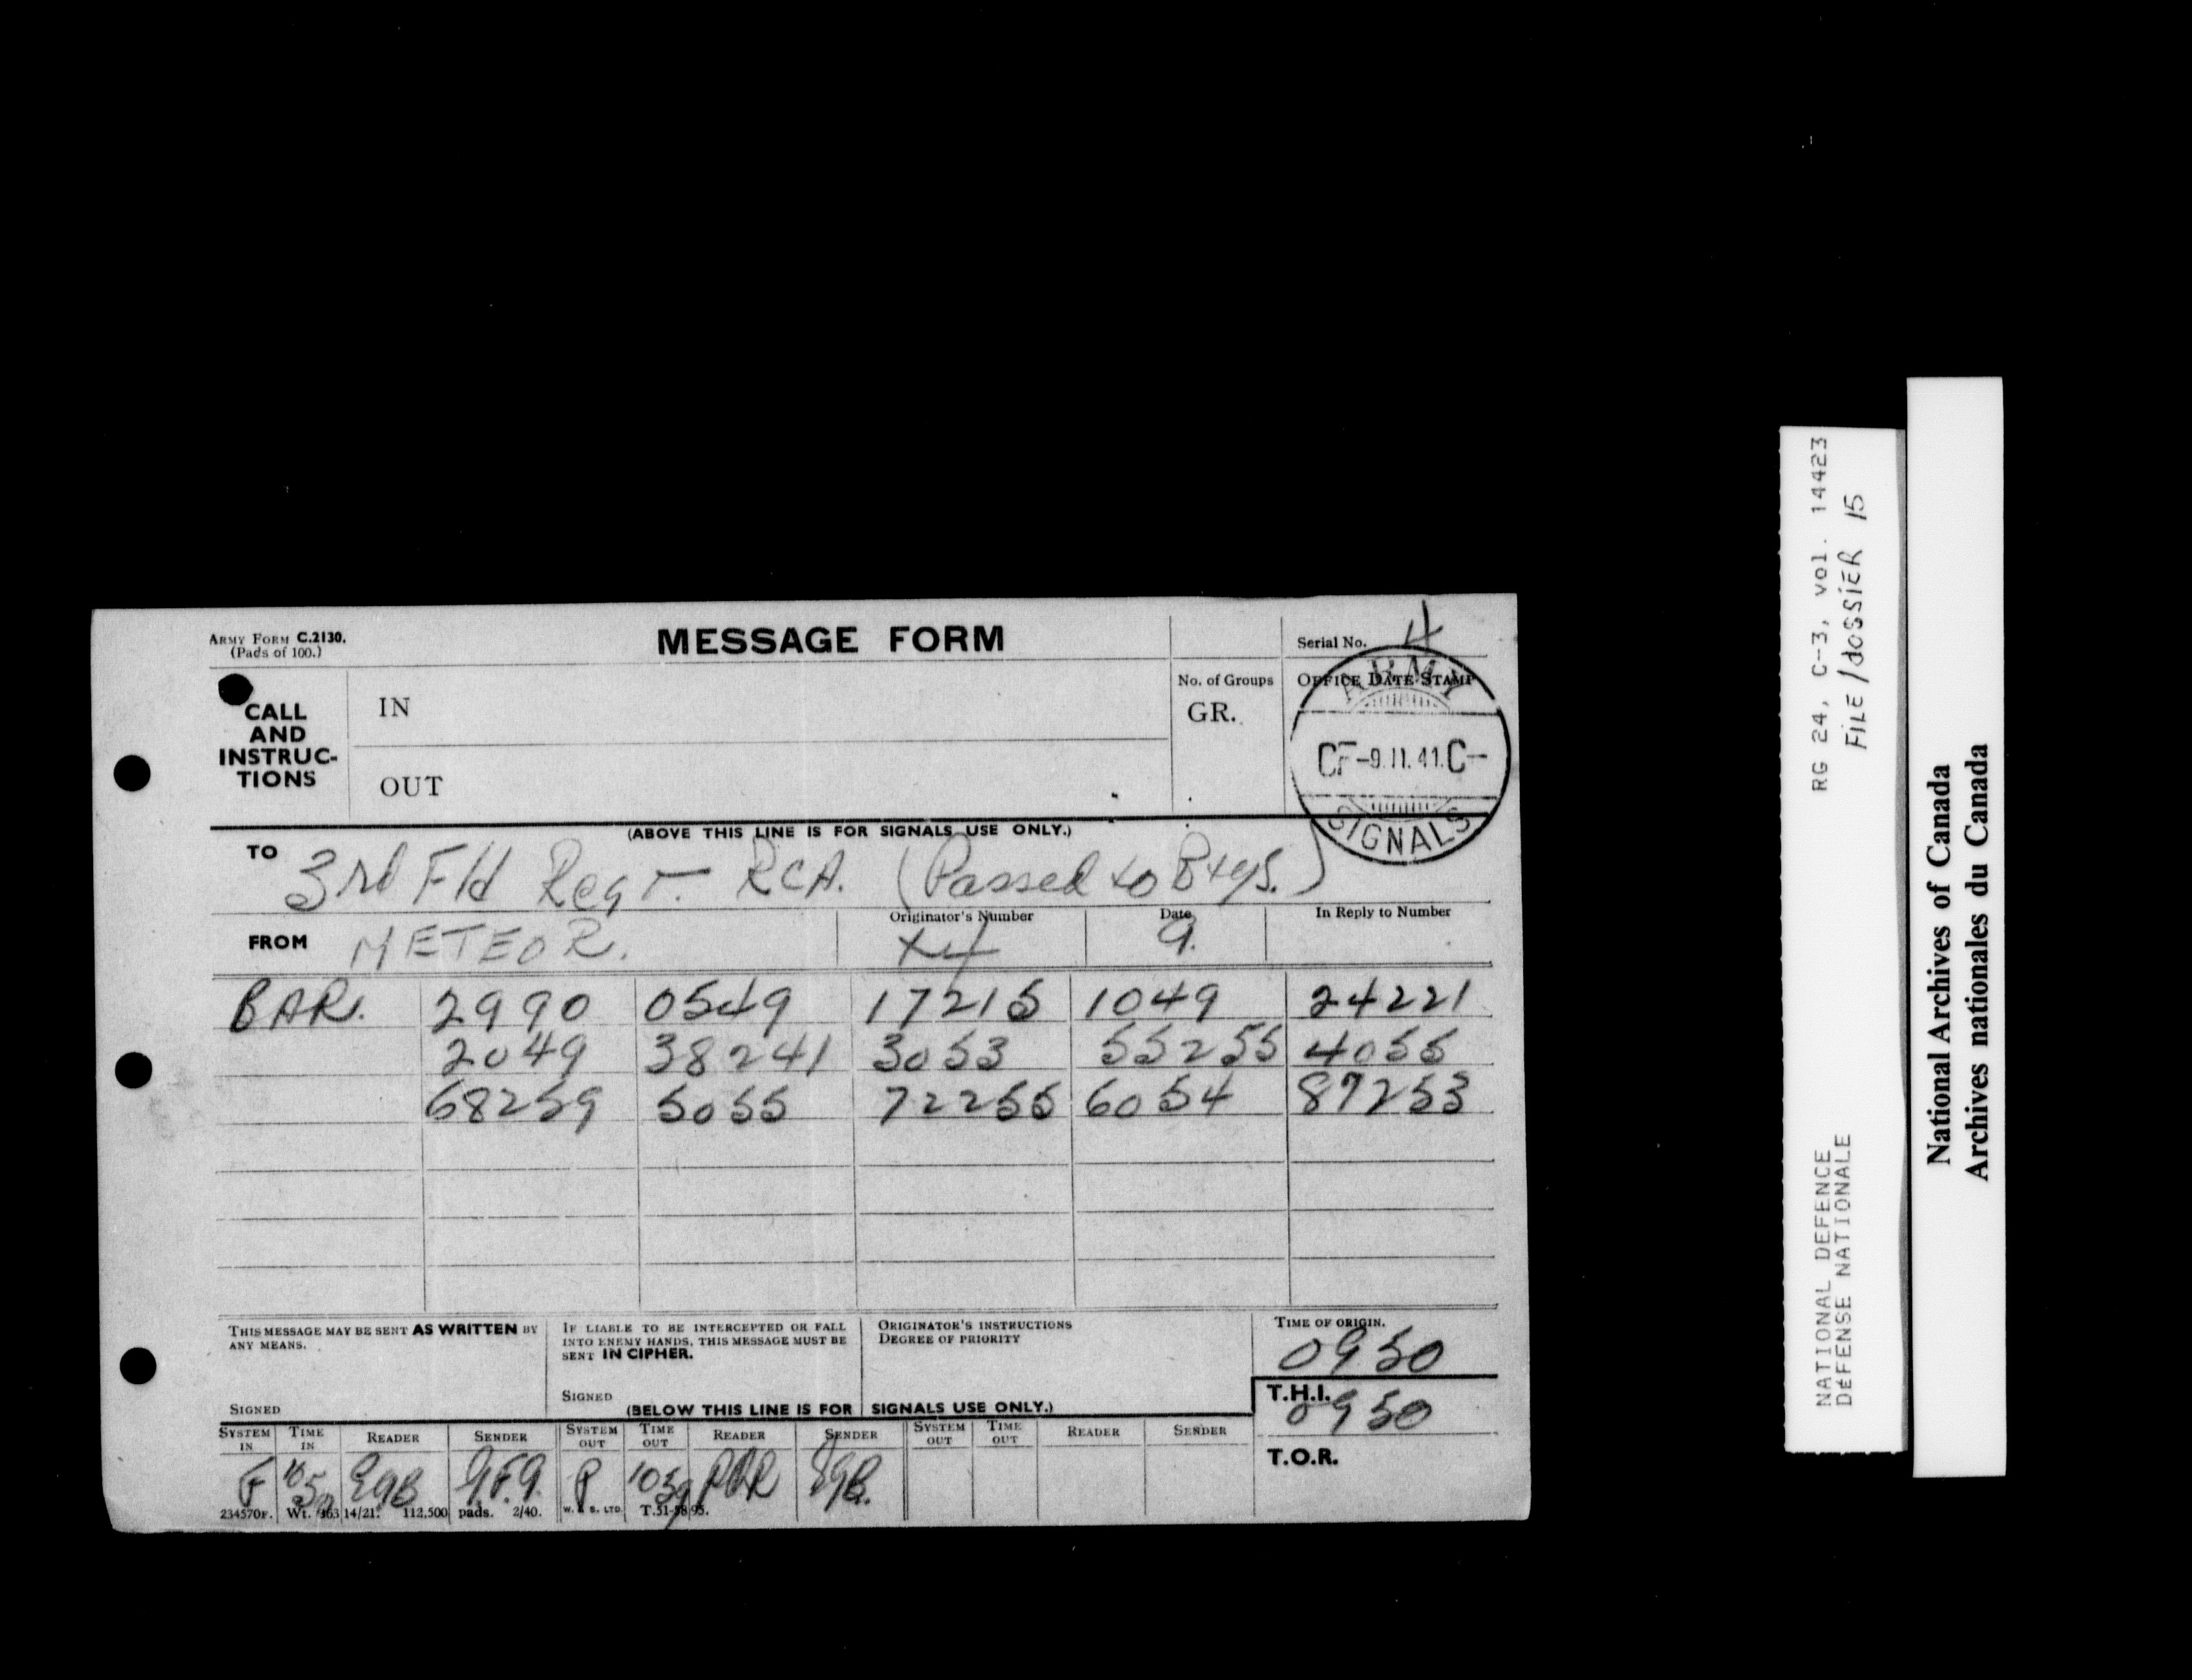 ARMY FORM C.2130.
(Pads of 100.)
MESSAGE FORM
Serial No. 4
CALL AND INSTRUC-TIONS
IN
OUT
No. of Groups
GR.
OFFICE DATE STAMP
ARMY
CF -9.11.41.C-
SIGNALS
(ABOVE THIS LINE IS FOR SIGNALS USE ONLY.)
TO 3rd Fld Regt. RCA. (Passed to Btys.)
FROM METEOR.
Originator's Number
Date 9.
In Reply to Number
BAR. 2990 0549 17215 1049 24221
2049 38241 3053 55255 4055
68259 5055 72255 6054 87253
THIS MESSAGE MAY BE SENT AS WRITTEN BY ANY MEANS.
SIGNED
IF LIABLE TO BE INTERCEPTED OR FALL INTO ENEMY HANDS, THIS MESSAGE MUST BE SENT IN CIPHER.
SIGNED
ORIGINATOR'S INSTRUCTIONS
DEGREE OF PRIORITY
TIME OF ORIGIN.
0950
T.H.I. 0950
T.O.R.
(BELOW THIS LINE IS FOR SIGNALS USE ONLY.)
SYSTEM IN TIME IN READER SENDER SYSTEM OUT TIME OUT READER SENDER SYSTEM OUT TIME OUT READER SENDER
F EGB P 1039
234570F. Wt. 14/21. 112,500 pads. 2/40. W. & S. LTD.
RG 24, C-3, vol. 14423
FILE/dOSSIER 15
NATIONAL DEFENCE
DEFENSE NATIONALE
National Archives of Canada
Archives nationales du Canada